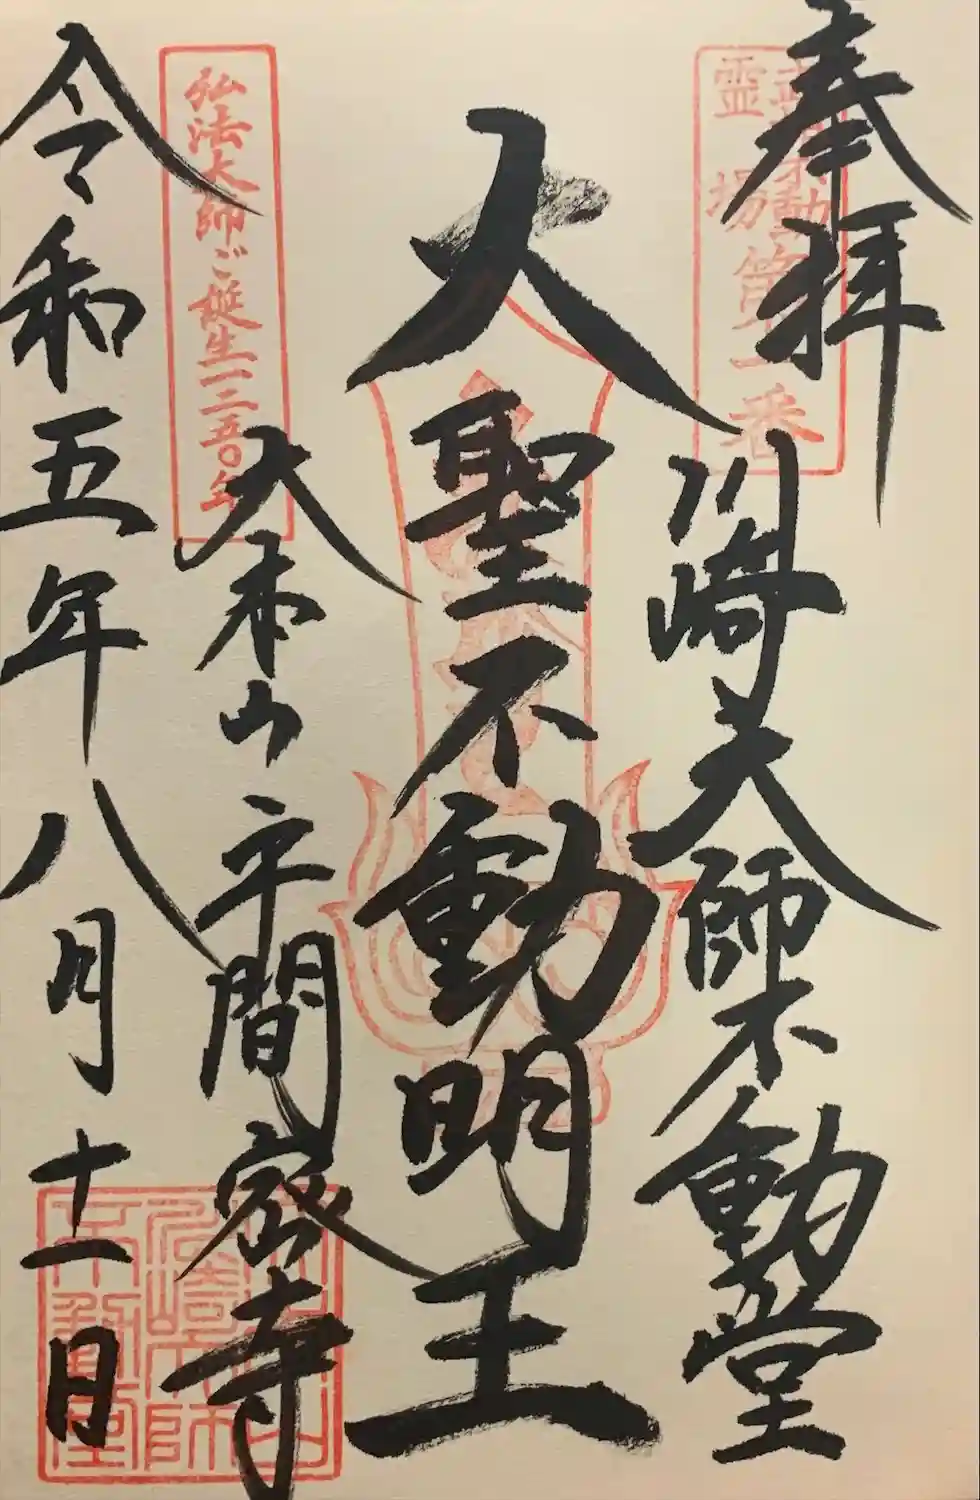 奉拝
川崎大師不動堂
大聖不動明王
大本山平間密寺
令和五年八月十一日
霊場第一番
弘法大師ご誕生一二五〇年